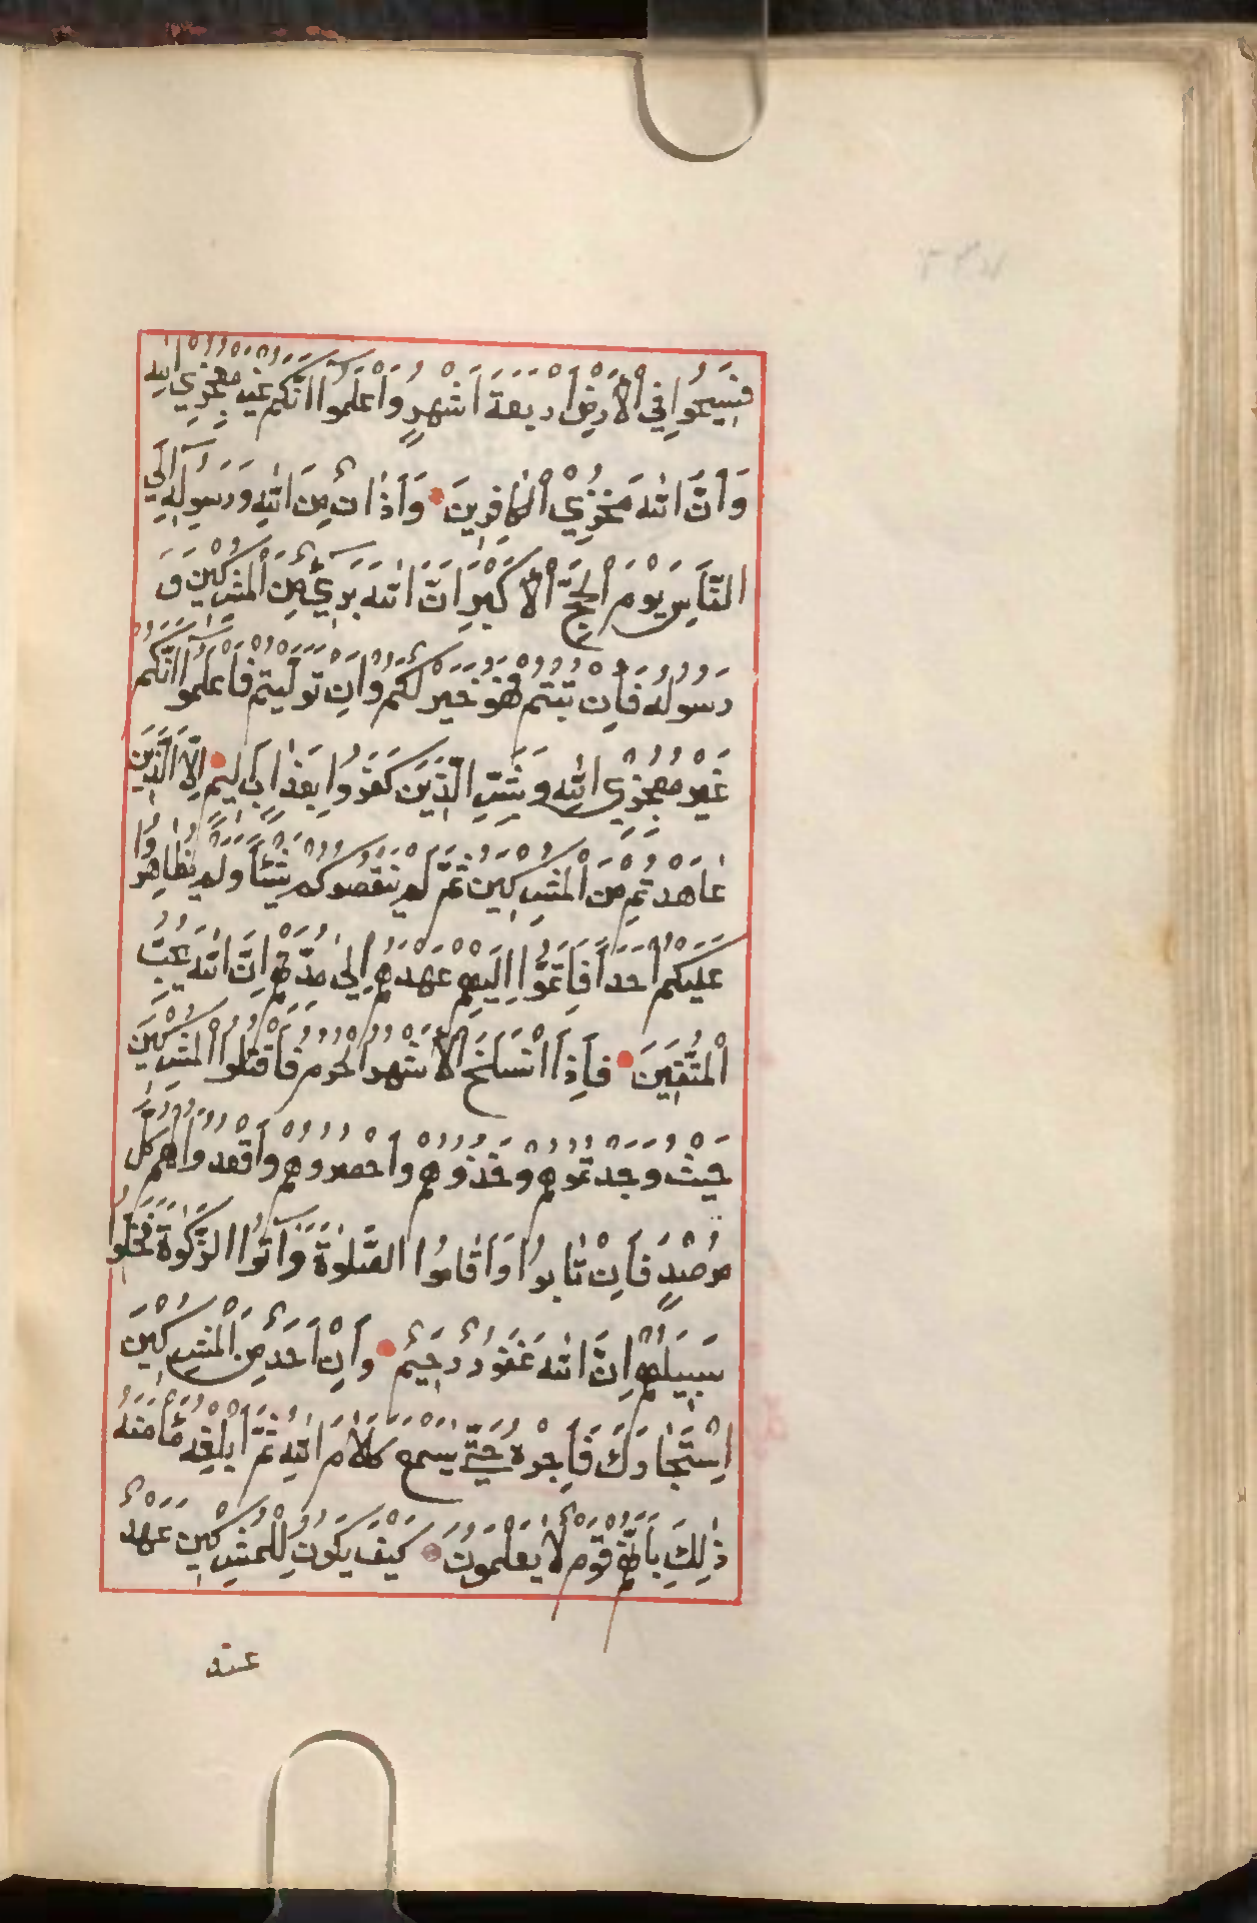 فَسِيحُوا فِي الْأَرْضِ أَرْبَعَةَ أَشْهُرٍ وَاعْلَمُوا أَنَّكُمْ غَيْرُ مُعْجِزِي اللهِ
وَأَنَّ اللهَ مُخْزِي الْكَافِرِينَ وَأَذَانٌ مِنَ اللهِ وَرَسُولِهِ إِلَى
النَّاسِ يَوْمَ الْحَجِّ الْأَكْبَرِ أَنَّ اللهَ بَرِيءٌ مِنَ الْمُشْرِكِينَ وَ
رَسُولُهُ فَإِنْ تُبْتُمْ فَهُوَ خَيْرٌ لَكُمْ وَإِنْ تَوَلَّيْتُمْ فَاعْلَمُوا أَنَّكُمْ
غَيْرُ مُعْجِزِي اللهِ وَبَشِّرِ الَّذِينَ كَفَرُوا بِعَذَابٍ أَلِيمٍ إِلَّا الَّذِينَ
عَاهَدْتُمْ مِنَ الْمُشْرِكِينَ ثُمَّ لَمْ يَنْقُصُوكُمْ شَيْئًا وَلَمْ يُظَاهِرُوا
عَلَيْكُمْ أَحَدًا فَأَتِمُّوا إِلَيْهِمْ عَهْدَهُمْ إِلَى مُدَّتِهِمْ إِنَّ اللهَ يُحِبُّ
الْمُتَّقِينَ فَإِذَا انْسَلَخَ الْأَشْهُرُ الْحُرُمُ فَاقْتُلُوا الْمُشْرِكِينَ
حَيْثُ وَجَدْتُمُوهُمْ وَخُذُوهُمْ وَاحْصُرُوهُمْ وَاقْعُدُوا لَهُمْ كُلَّ
مَرْصَدٍ فَإِنْ تَابُوا وَأَقَامُوا الصَّلٰوةَ وَآتَوُا الزَّكٰوةَ فَخَلُّوا
سَبِيلَهُمْ إِنَّ اللهَ غَفُورٌ رَحِيمٌ وَإِنْ أَحَدٌ مِنَ الْمُشْرِكِينَ
اسْتَجَارَكَ فَأَجِرْهُ حَتَّى يَسْمَعَ كَلَامَ اللهِ ثُمَّ أَبْلِغْهُ مَأْمَنَهُ
ذٰلِكَ بِأَنَّهُمْ قَوْمٌ لَا يَعْلَمُونَ كَيْفَ يَكُونُ لِلْمُشْرِكِينَ عَهْدٌ
عند